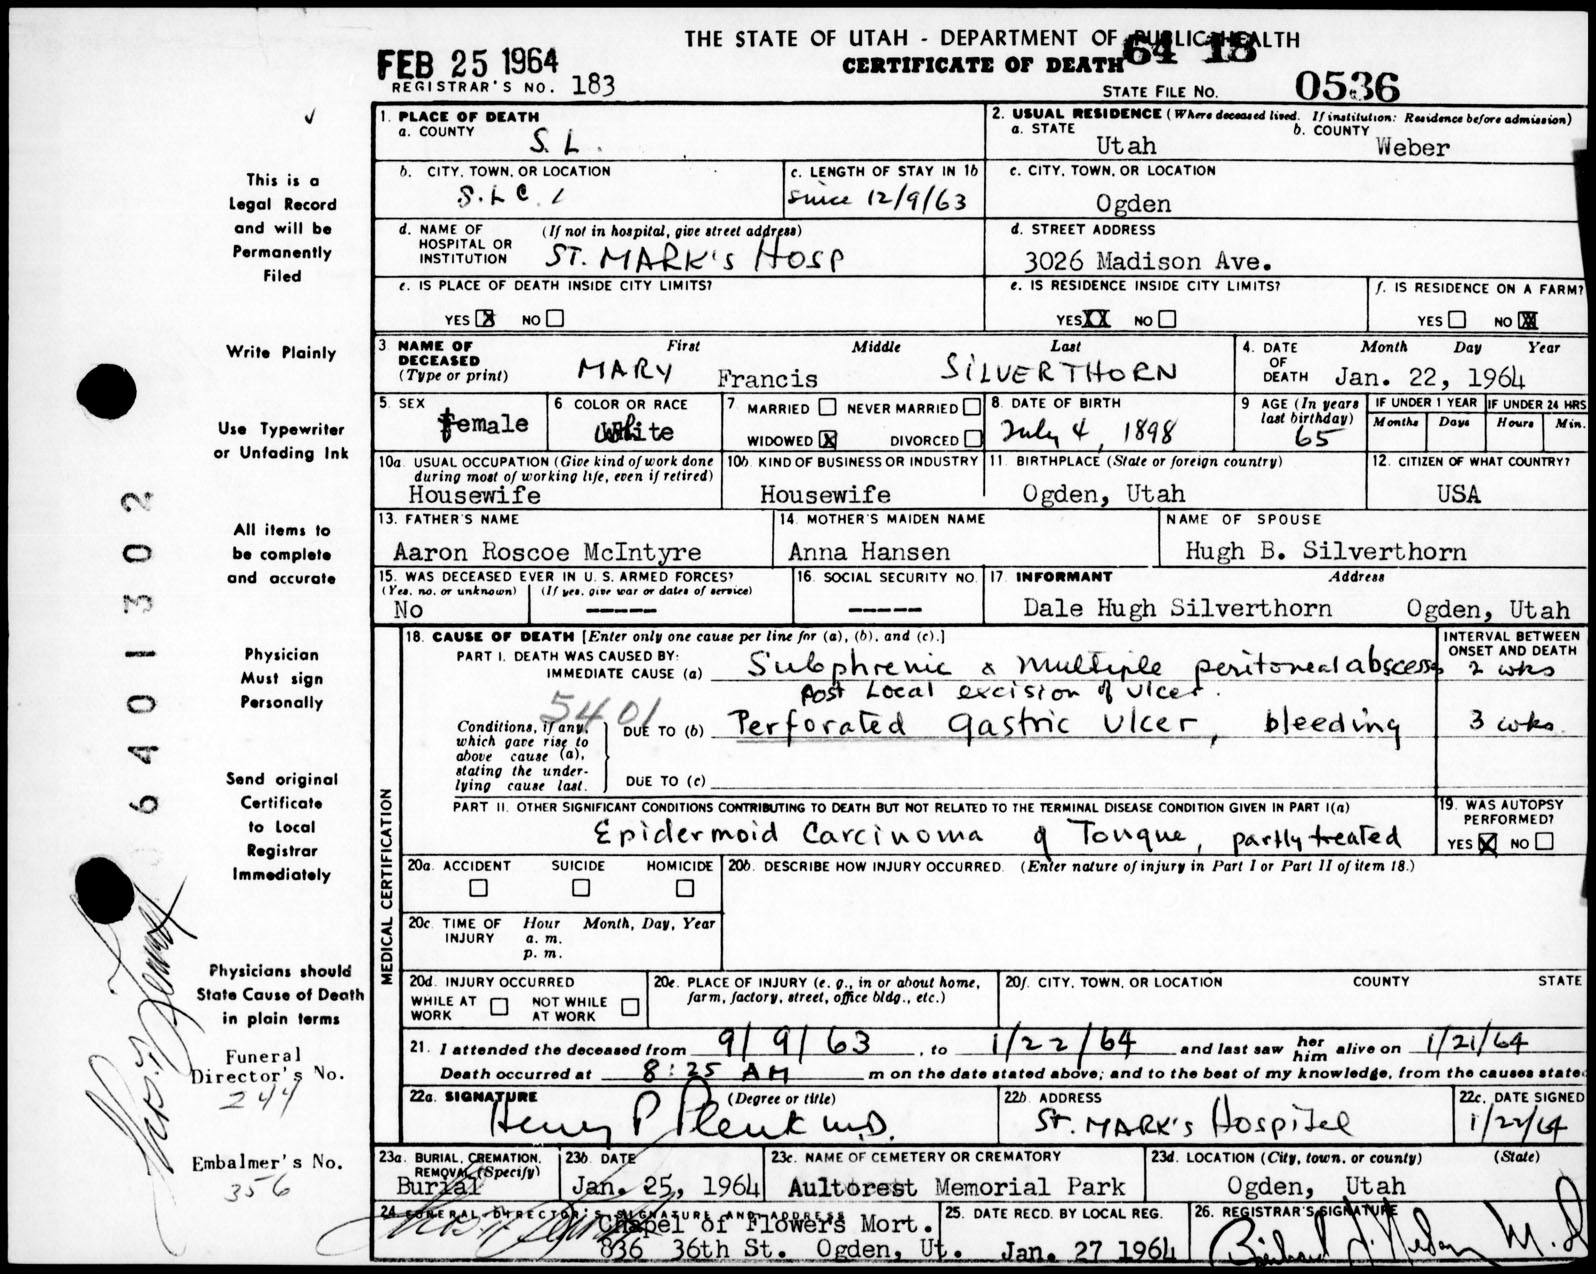 THE STATE OF UTAH - DEPARTMENT OF PUBLIC HEALTH
64 18
FEB 25 1964
CERTIFICATE OF DEATH
REGISTRAR'S NO. 183
STATE FILE NO. 0536
This is a
Legal Record
and will be
Permanently
Filed
Write Plainly
Use Typewriter
or Unfading Ink
All items to
be complete
and accurate
Physician
Must sign
Personally
Send original
Certificate
to Local
Registrar
Immediately
Physicians should
State Cause of Death
in plain terms
Funeral
Director's No.
244
Embalmer's No.
356
6401302
1. PLACE OF DEATH
a. COUNTY
S. L.
2. USUAL RESIDENCE (Where deceased lived. If institution: Residence before admission)
a. STATE b. COUNTY
Utah Weber
b. CITY, TOWN, OR LOCATION
S.L.C.
c. LENGTH OF STAY IN 1b
since 12/9/63
c. CITY, TOWN, OR LOCATION
Ogden
d. NAME OF (If not in hospital, give street address)
HOSPITAL OR
INSTITUTION ST. MARK'S HOSP
d. STREET ADDRESS
3026 Madison Ave.
e. IS PLACE OF DEATH INSIDE CITY LIMITS?
YES X NO
e. IS RESIDENCE INSIDE CITY LIMITS?
YES XX NO
f. IS RESIDENCE ON A FARM?
YES NO X
3 NAME OF First Middle Last
DECEASED
(Type or print) MARY Francis SILVERTHORN
4. DATE Month Day Year
OF
DEATH Jan. 22, 1964
5. SEX
female
6 COLOR OR RACE
White
7 MARRIED NEVER MARRIED
WIDOWED X DIVORCED
8. DATE OF BIRTH
July 4, 1898
9 AGE (In years
last birthday)
65
IF UNDER 1 YEAR IF UNDER 24 HRS
Months Days Hours Min.
10a. USUAL OCCUPATION (Give kind of work done
during most of working life, even if retired)
Housewife
10b. KIND OF BUSINESS OR INDUSTRY
Housewife
11. BIRTHPLACE (State or foreign country)
Ogden, Utah
12. CITIZEN OF WHAT COUNTRY?
USA
13. FATHER'S NAME
Aaron Roscoe McIntyre
14. MOTHER'S MAIDEN NAME
Anna Hansen
NAME OF SPOUSE
Hugh B. Silverthorn
15. WAS DECEASED EVER IN U. S. ARMED FORCES?
(Yes, no, or unknown) (If yes, give war or dates of service)
No -----
16. SOCIAL SECURITY NO.
-----
17. INFORMANT Address
Dale Hugh Silverthorn Ogden, Utah
MEDICAL CERTIFICATION
18. CAUSE OF DEATH [Enter only one cause per line for (a), (b), and (c).]
INTERVAL BETWEEN
ONSET AND DEATH
PART I. DEATH WAS CAUSED BY:
IMMEDIATE CAUSE (a) Subphrenic & multiple peritoneal abscess 2 wks
post Local excision of ulcer.
5401
Conditions, if any,
which gave rise to
above cause (a),
stating the under-
lying cause last.
DUE TO (b) Perforated gastric ulcer, bleeding 3 wks
DUE TO (c)
PART II. OTHER SIGNIFICANT CONDITIONS CONTRIBUTING TO DEATH BUT NOT RELATED TO THE TERMINAL DISEASE CONDITION GIVEN IN PART I(a)
Epidermoid Carcinoma of Tongue, partly treated
19. WAS AUTOPSY
PERFORMED?
YES X NO
20a. ACCIDENT SUICIDE HOMICIDE
20b. DESCRIBE HOW INJURY OCCURRED. (Enter nature of injury in Part I or Part II of item 18.)
20c. TIME OF Hour Month, Day, Year
INJURY a. m.
p. m.
20d. INJURY OCCURRED
WHILE AT NOT WHILE
WORK AT WORK
20e. PLACE OF INJURY (e. g., in or about home,
farm, factory, street, office bldg., etc.)
20f. CITY, TOWN, OR LOCATION COUNTY STATE
21. I attended the deceased from 9/9/63, to 1/22/64 and last saw her him alive on 1/21/64
Death occurred at 8:25 AM m on the date stated above; and to the best of my knowledge, from the causes state
22a. SIGNATURE (Degree or title)
Henry P Plenk M.D.
22b. ADDRESS
ST. MARK'S Hospital
22c. DATE SIGNED
1/22/64
23a. BURIAL, CREMATION,
REMOVAL (Specify)
Burial
23b. DATE
Jan. 25, 1964
23c. NAME OF CEMETERY OR CREMATORY
Aultorest Memorial Park
23d. LOCATION (City, town, or county) (State)
Ogden, Utah
24 FUNERAL DIRECTOR'S SIGNATURE AND ADDRESS
Chapel of Flowers Mort.
836 36th St. Ogden, Ut.
25. DATE RECD. BY LOCAL REG.
Jan. 27 1964
26. REGISTRAR'S SIGNATURE